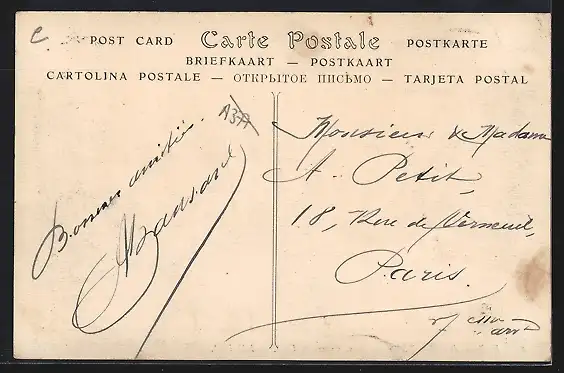 c
POST CARD Carte Postale POSTKARTE
BRIEFKAART — POSTKAART
CARTOLINA POSTALE — ОТКРЫТОЕ ПИСЬМО — TARJETA POSTAL
Bonnes amitiés.
Monsieur & Madame
A. Petit,
18, Rue de Verneuil,
Paris.
7 eme
arrt